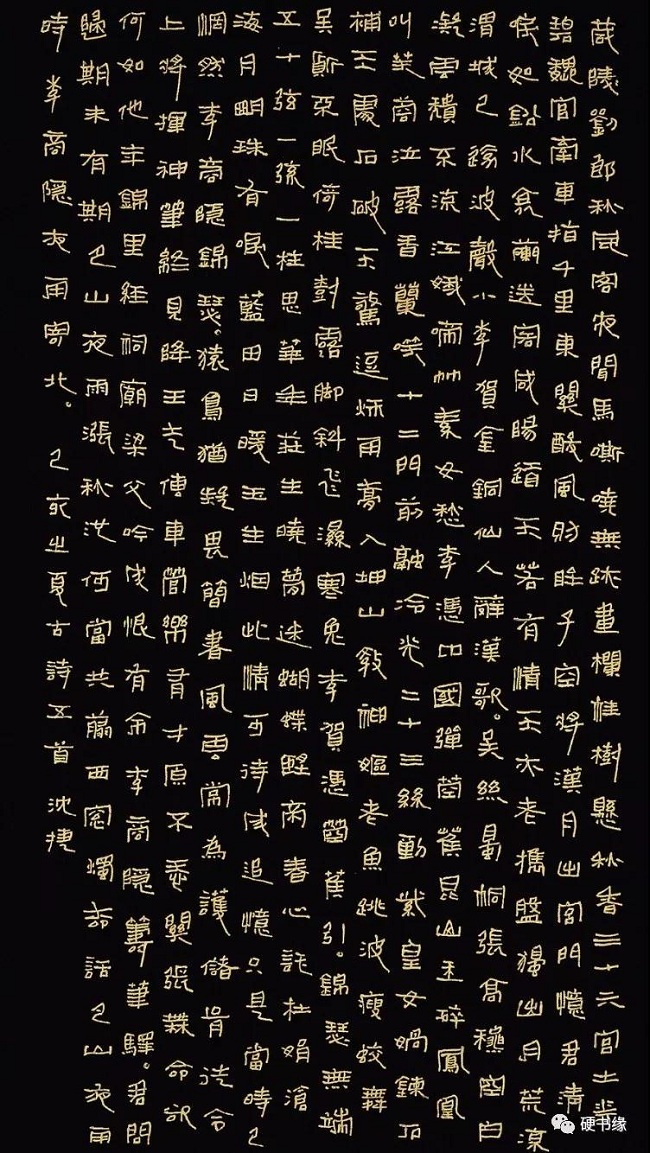 茂陵劉郎秋風客夜聞馬嘶曉無跡畫欄桂樹懸秋香三十六宮土花
碧魏官牽車指千里東關酸風射眸子空將漢月出宮門憶君清
淚如鉛水衰蘭送客咸陽道天若有情天亦老攜盤獨出月荒涼
渭城已遠波聲小李賀金銅仙人辭漢歌。吳絲蜀桐張高穐空白
凝雲穨不流江娥啼竹素女愁李憑中國彈箜篌昆山玉碎鳳凰
叫芙蓉泣露香蘭笑十二門前融冷光二十三絲動紫皇女媧鍊石
補天處石破天驚逗秋雨夢入坤山教神嫗老魚跳波瘦蛟舞
吳質不眠倚桂樹露腳斜飛濕寒兔李賀憑箜篌引。錦瑟無端
五十弦一弦一柱思華年莊生曉夢迷蝴蝶朢帝春心託杜鵑滄
海月明珠有淚藍田日暖玉生烟此情可待成追憶只是當時已
惘然李商隱錦瑟。猿鳥猶疑畏簡書風雲常為護儲胥徒令
上將揮神筆終見降王走傳車管樂有才原不忝關張無命欲
何如他年錦里經祠廟梁父吟成恨有余李商隱籌筆驛。君問
歸期未有期巴山夜雨漲秋池何當共剪西窗燭卻話巴山夜雨
時李商隱夜雨寄北。己亥之夏古詩五首沈捷
硬书缘